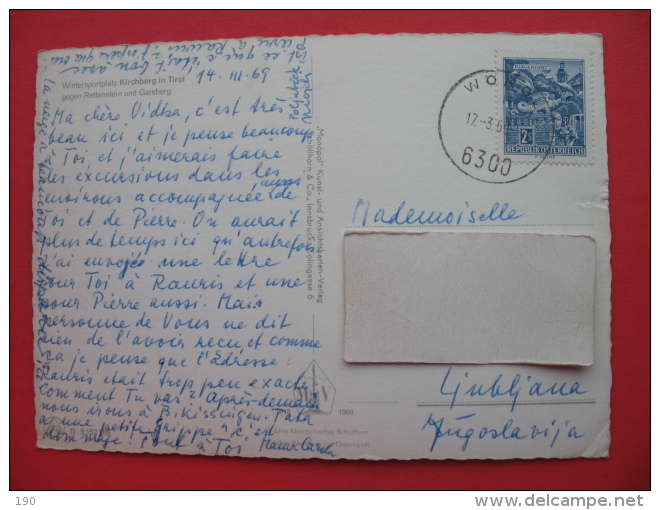 Wintersportplatz Kirchberg in Tirol
gegen Rettenstein und Gaisberg
14. III. 69
Ma chère Vidka, c'est très
beau ici et je pense beaucoup
à Toi, et j'aimerais faire
des excursions dans les
environs accompagnée de
Toi et de Pierre. On aurait
plus de temps ici qu'autrefois
J'ai envoyé une lettre
pour Toi à Rauris et une
pour Pierre aussi. Mais
personne de Vous ne dit
rien de l'avoir reçu et comme
ça je pense que l'adresse:
Rauris était trop peu exacte
Comment Tu vas? Après-demain
nous irons à B. Kissingen. Tata
a une petite grippe, c'est
dommage! Tout à Toi
"Monopol" Kunst- und Ansichtskarten-Verlag
Schöllhorn & Co., Innsbruck,
1968
KLAGENFURT
2S
REPUBLIK ÖSTERREICH
WÖRGL
17.-3.
6300
Mademoiselle
Ljubljana
Jugoslavija
190